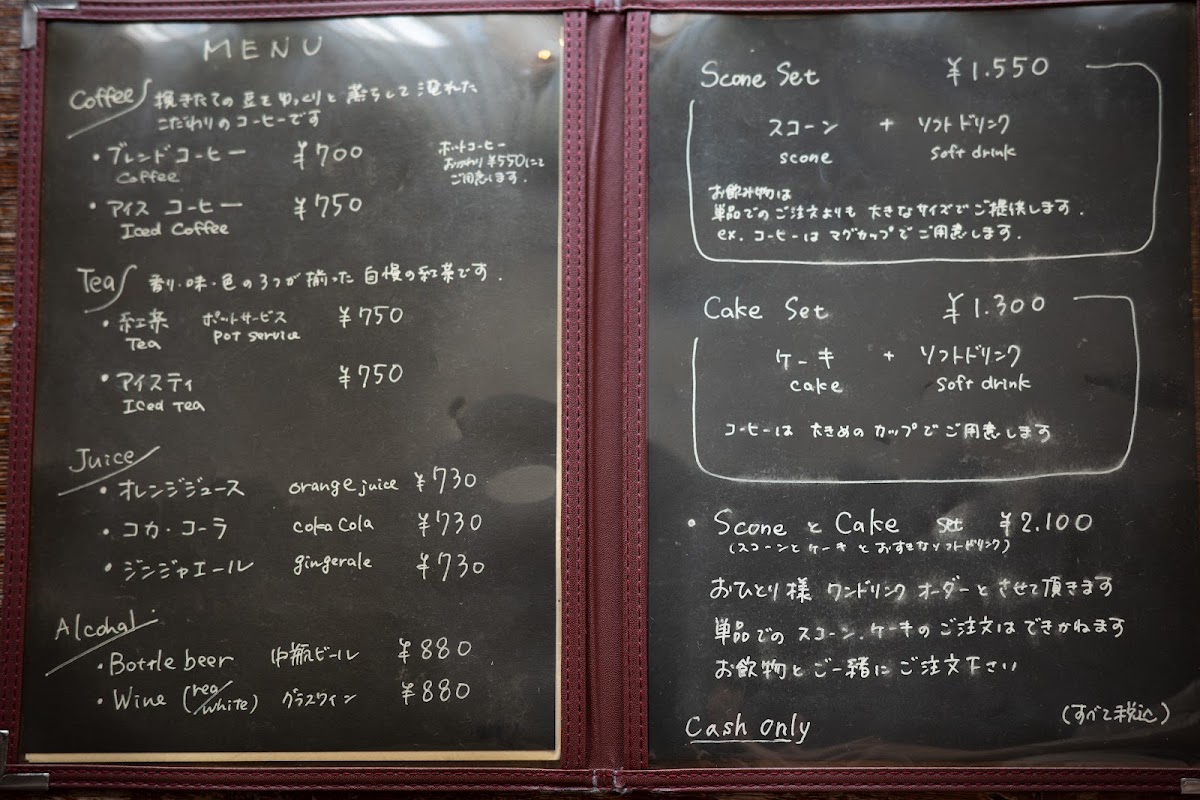 MENU
Coffee 挽きたての豆をゆっくりと蒸らして淹れた
こだわりのコーヒーです
・ブレンドコーヒー ¥700
Coffee
ホットコーヒー
おかわり¥550にて
ご用意します.
・アイス コーヒー ¥750
Iced Coffee
Tea 香り・味・色の3つが揃った自慢の紅茶です.
・紅茶 ポットサービス ¥750
Tea Pot service
・アイスティ ¥750
Iced Tea
Juice
・オレンジジュース orange juice ¥730
・コカ・コーラ coka cola ¥730
・ジンジャエール gingerale ¥730
Alcohal
・Bottle beer 中瓶ビール ¥880
・Wine (red/white) グラスワイン ¥880
Scone Set ¥1.550
スコーン + ソフトドリンク
scone soft drink
お飲み物は
単品でのご注文よりも 大きなサイズでご提供します.
ex. コーヒーは マグカップでご用意します.
Cake Set ¥1.300
ケーキ + ソフトドリンク
cake soft drink
コーヒーは 大きめの カップで ご用意します
・Scone と Cake set ¥2.100
(スコーンと ケーキ と お好きなソフトドリンク)
おひとり様 ワンドリンク オーダーと させて頂きます
単品での スコーン、ケーキの ご注文は できかねます
お飲物と ご一緒に ご注文下さい
Cash only
(すべて税込)